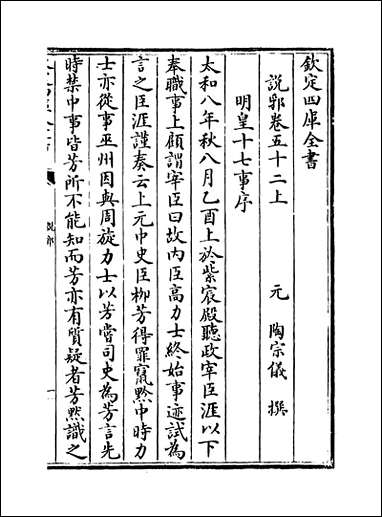 欽定四庫全書
說郛卷五十二上
元　陶宗儀　撰
明皇十七事序
太和八年秋八月乙酉上於紫宸殿聽政宰臣涯以下
奉職事上顧謂宰臣曰故内臣高力士終始事迹試為
言之臣涯謹奏云上元中史臣柳芳得罪竄黔中時力
士亦從事巫州因與周旋力士以芳嘗司史為芳言先
時禁中事皆芳所不能知而芳亦有質疑者芳黙識之
說郛
一